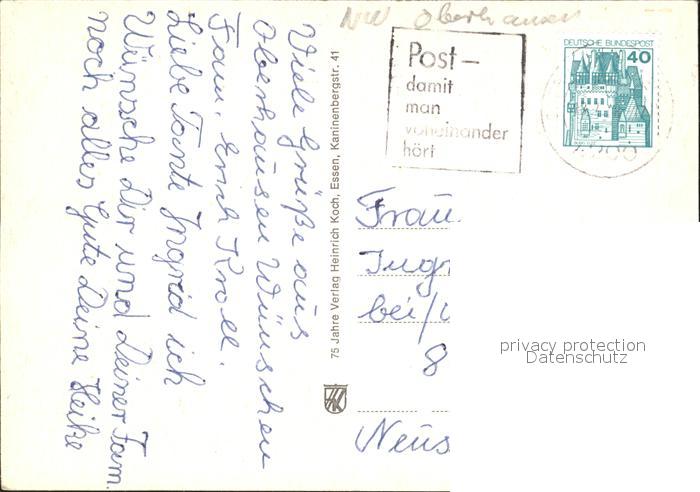 NW Oberhausen
Post –
damit
man
voneinander
hört
DEUTSCHE BUNDESPOST
40
Viele Grüße aus
Oberhausen Wünschen
Fam. Erich Kroll.
Liebe Tante Ingrid ich
Wünsche Dir und Deiner Fam.
noch alles Gute Deine Heike
75 Jahre Verlag Heinrich Koch, Essen, Kaninenbergstr. 41
Frau
Ingr
bei/
8
Neus
privacy protection
Datenschutz